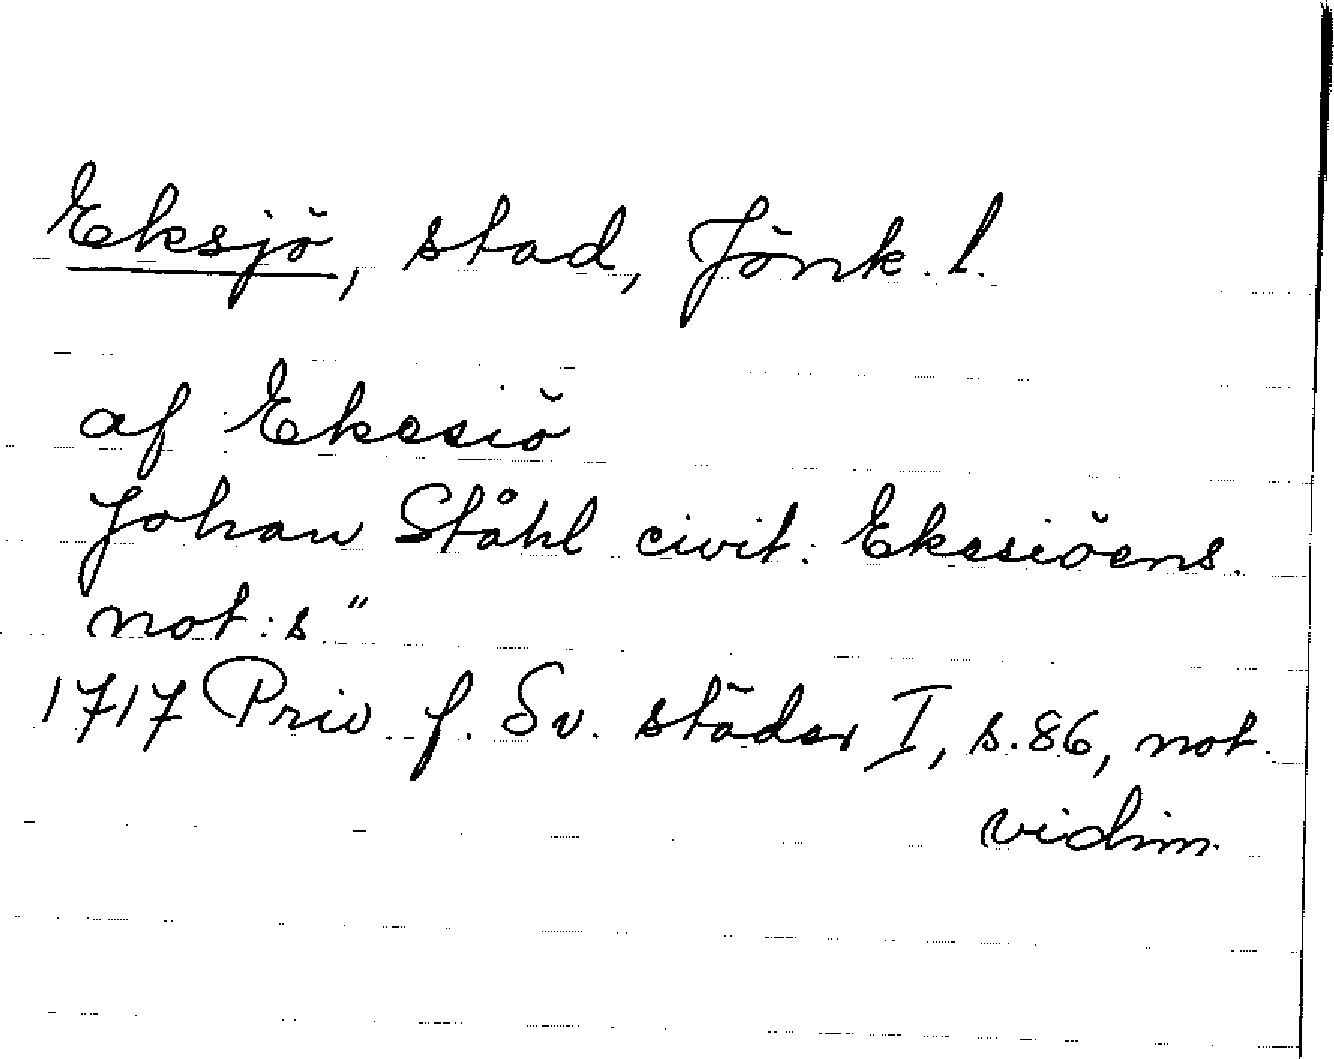 Eksjö, stad, Jönk. l.
af Ekesiö
Johan Ståhl civit: Ekesiöens.
not:s"
1717 Priv f. Sv. städer I, s.86, not.
vidim.